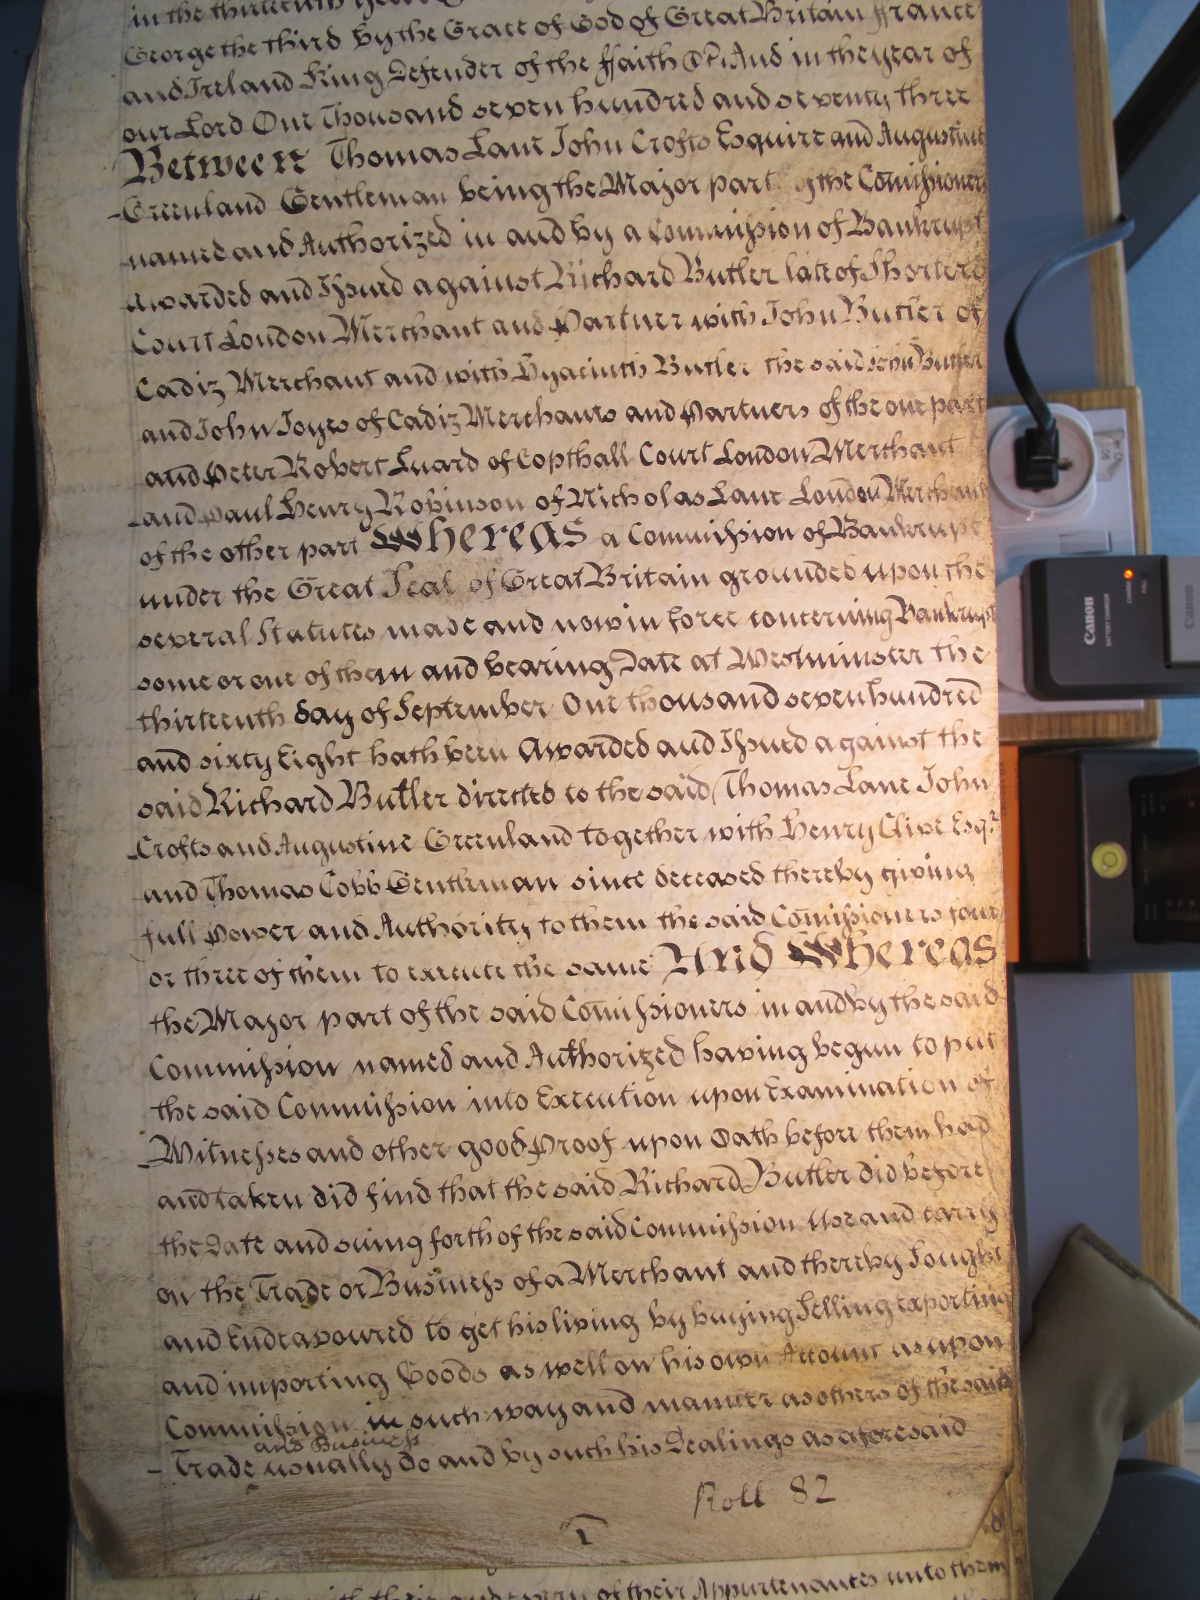 in the thirteenth
George the third by the Grace of God of Great Britain ffrance
and Ireland King Defender of the ffaith &c. And in the year of
our Lord One Thousand seven hundred and seventy three
Between Thomas Lane John Crofts Esquire and Augustine
Greenland Gentleman being the Major part of the Comissioners
named and Authorized in and by a Commission of Bankrupt
awarded and Issued against Richard Butler late of Shorters
Court London Merchant and Partner with John Butler of
Cadiz Merchant and with Hyacinth Butler the said John Butler
and John Joyes of Cadiz Merchants and Partners of the one part
and Peter Robert Luard of Copthall Court London Merchant
and Paul Henry Robinson of Nicholas Lane London Merchant
of the other part Whereas a Commission of Bankrupt
under the Great Seal of Great Britain grounded upon the
several Statutes made and now in force concerning Bankrupts
some or one of them and bearing Date at Westminster the
thirteenth day of September One thousand seven hundred
and sixty Eight hath been Awarded and Issued against the
said Richard Butler directed to the said Thomas Lane John
Crofts and Augustine Greenland together with Henry Clive Esqr.
and Thomas Cobb Gentleman since deceased thereby giving
full Power and Authority to them the said Comissioners four
or three of them to execute the same And Whereas
the Major part of the said Comissioners in and by the said
Commission named and Authorized having begun to put
the said Commission into Execution upon Examination of
Witnesses and other good Proof upon Oath before them had
and taken did find that the said Richard Butler did before
the Date and suing forth of the said Commission Use and carry
on the Trade or Business of a Merchant and thereby Sought
and Endeavoured to get his living by buying Selling exporting
and importing Goods as well on his own Account as upon
Commission in such way and manner as others of the said
and Business
Trade usually do and by such his Dealings as aforesaid
Roll 82
1
of their Appurtenances unto them
Canon
BATTERY CHARGER
CHARGE
FULL
Canon